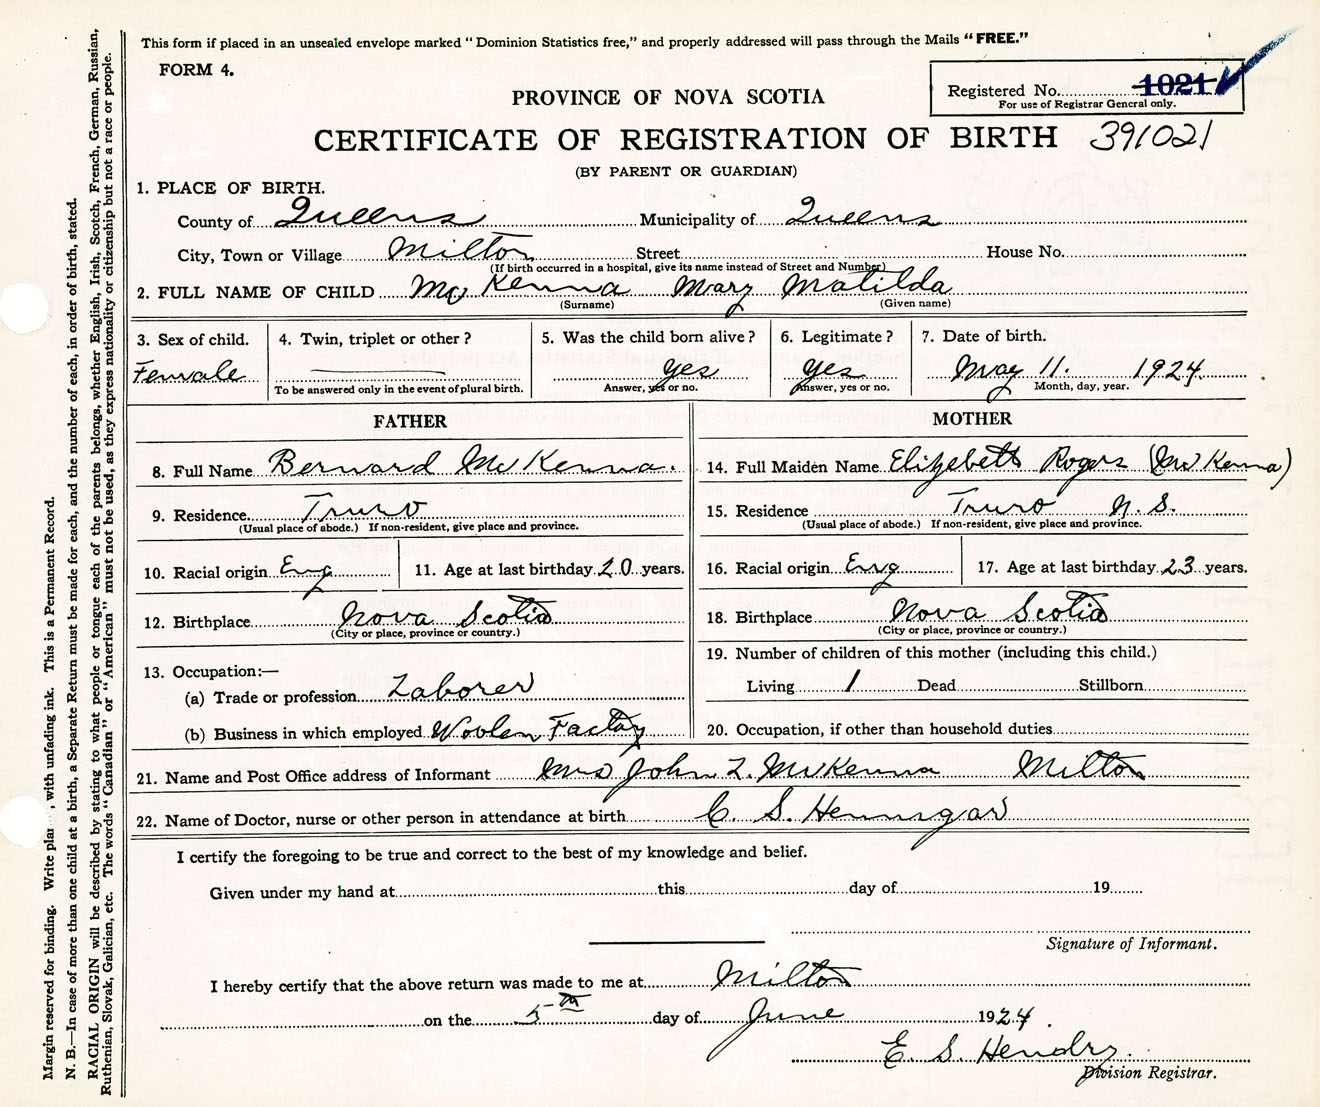 This form if placed in an unsealed envelope marked “Dominion Statistics free,” and properly addressed will pass through the Mails “FREE.”
FORM 4.
Registered No. 1021
For use of Registrar General only.
PROVINCE OF NOVA SCOTIA
CERTIFICATE OF REGISTRATION OF BIRTH 391021
(BY PARENT OR GUARDIAN)
1. PLACE OF BIRTH.
County of Queens Municipality of Queens
City, Town or Village Milton Street House No.
(If birth occurred in a hospital, give its name instead of Street and Number)
2. FULL NAME OF CHILD McKenna Mary Matilda
(Surname) (Given name)
3. Sex of child. 4. Twin, triplet or other? 5. Was the child born alive? 6. Legitimate? 7. Date of birth.
Female yes yes May 11. 1924.
To be answered only in the event of plural birth. Answer, yes or no. Answer, yes or no. Month, day, year.
FATHER MOTHER
8. Full Name Bernard McKenna. 14. Full Maiden Name Elizabeth Rogers (McKenna)
9. Residence Truro 15. Residence Truro N. S.
(Usual place of abode.) If non-resident, give place and province. (Usual place of abode.) If non-resident, give place and province.
10. Racial origin Eng 11. Age at last birthday 20 years. 16. Racial origin Eng 17. Age at last birthday 23 years.
12. Birthplace Nova Scotia 18. Birthplace Nova Scotia
(City or place, province or country.) (City or place, province or country.)
13. Occupation:— 19. Number of children of this mother (including this child.)
(a) Trade or profession Laborer Living 1 Dead Stillborn
(b) Business in which employed Woolen Factory 20. Occupation, if other than household duties
21. Name and Post Office address of Informant Mrs John L. McKenna Milton
22. Name of Doctor, nurse or other person in attendance at birth C. S. Hennigar
I certify the foregoing to be true and correct to the best of my knowledge and belief.
Given under my hand at this day of 19
Signature of Informant.
I hereby certify that the above return was made to me at Milton
on the 5th day of June 1924.
E. S. Hendry.
Division Registrar.
Margin reserved for binding. Write plain, with unfading ink. This is a Permanent Record.
N. B.—In case of more than one child at a birth, a Separate Return must be made for each, and the number of each, in order of birth, stated.
RACIAL ORIGIN will be described by stating to what people or tongue each of the parents belongs, whether English, Irish, Scotch, French, German, Russian,
Ruthenian, Slovak, Galician, etc. The words “Canadian” or “American” must not be used, as they express nationality or citizenship but not a race or people.